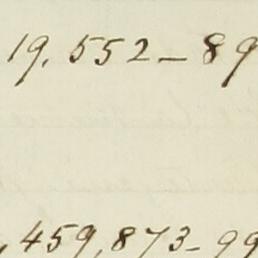 19.552-89
,459,873-99